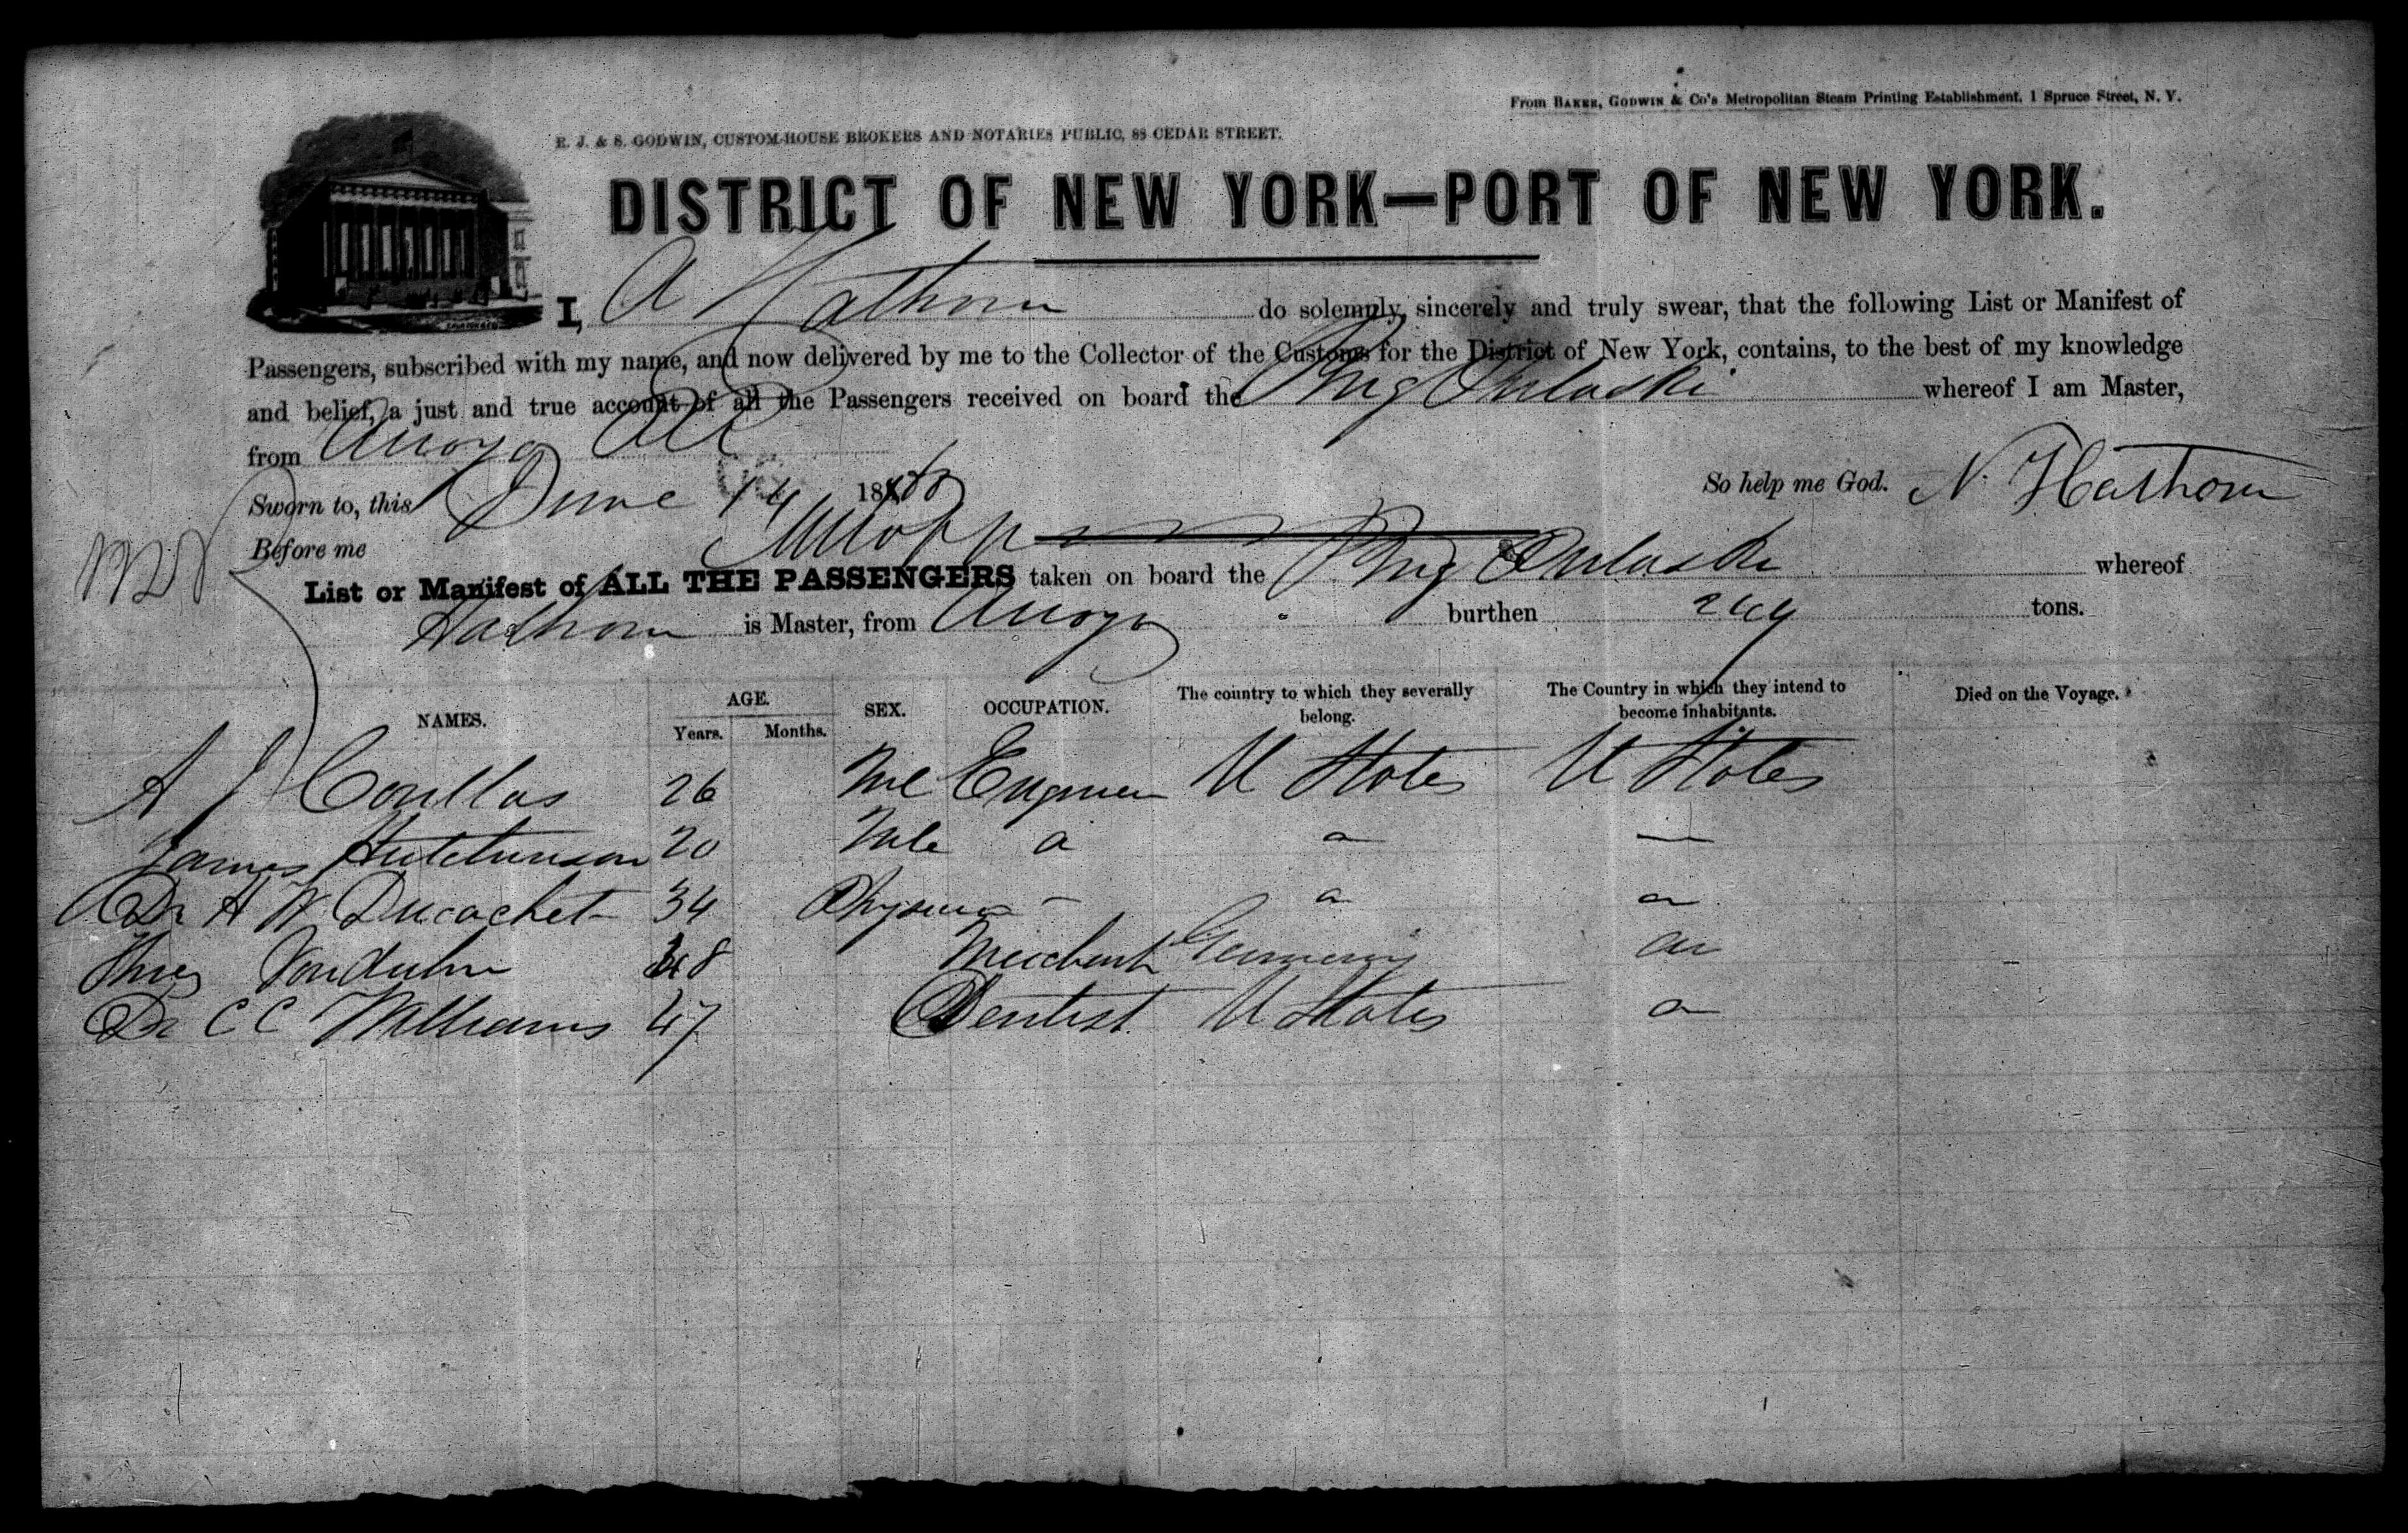 From BAKER, GODWIN & Co's Metropolitan Steam Printing Establishment, 1 Spruce Street, N. Y.
E. J. & S. GODWIN, CUSTOM-HOUSE BROKERS AND NOTARIES PUBLIC, 88 CEDAR STREET.
DISTRICT OF NEW YORK—PORT OF NEW YORK.
I, A Hathorn do solemnly, sincerely and truly swear, that the following List or Manifest of
Passengers, subscribed with my name, and now delivered by me to the Collector of the Customs for the District of New York, contains, to the best of my knowledge
and belief, a just and true account of all the Passengers received on board the Brig Pulaski whereof I am Master,
from Arroyo PR
Sworn to, this June 14 1860 So help me God. N. Hathorn
Before me
List or Manifest of ALL THE PASSENGERS taken on board the Brig Pulaski whereof
Hathorn is Master, from Arroyo burthen tons.
NAMES. AGE. Years. Months. SEX. OCCUPATION. The country to which they severally belong. The Country in which they intend to become inhabitants. Died on the Voyage.
A J 26 Ml Engineer U States U States
James Hutchinson 20 Mle
Dr H W Ducachet 34 Physician
48 Merchant Germany
Dr C C Williams 47 Dentist U States